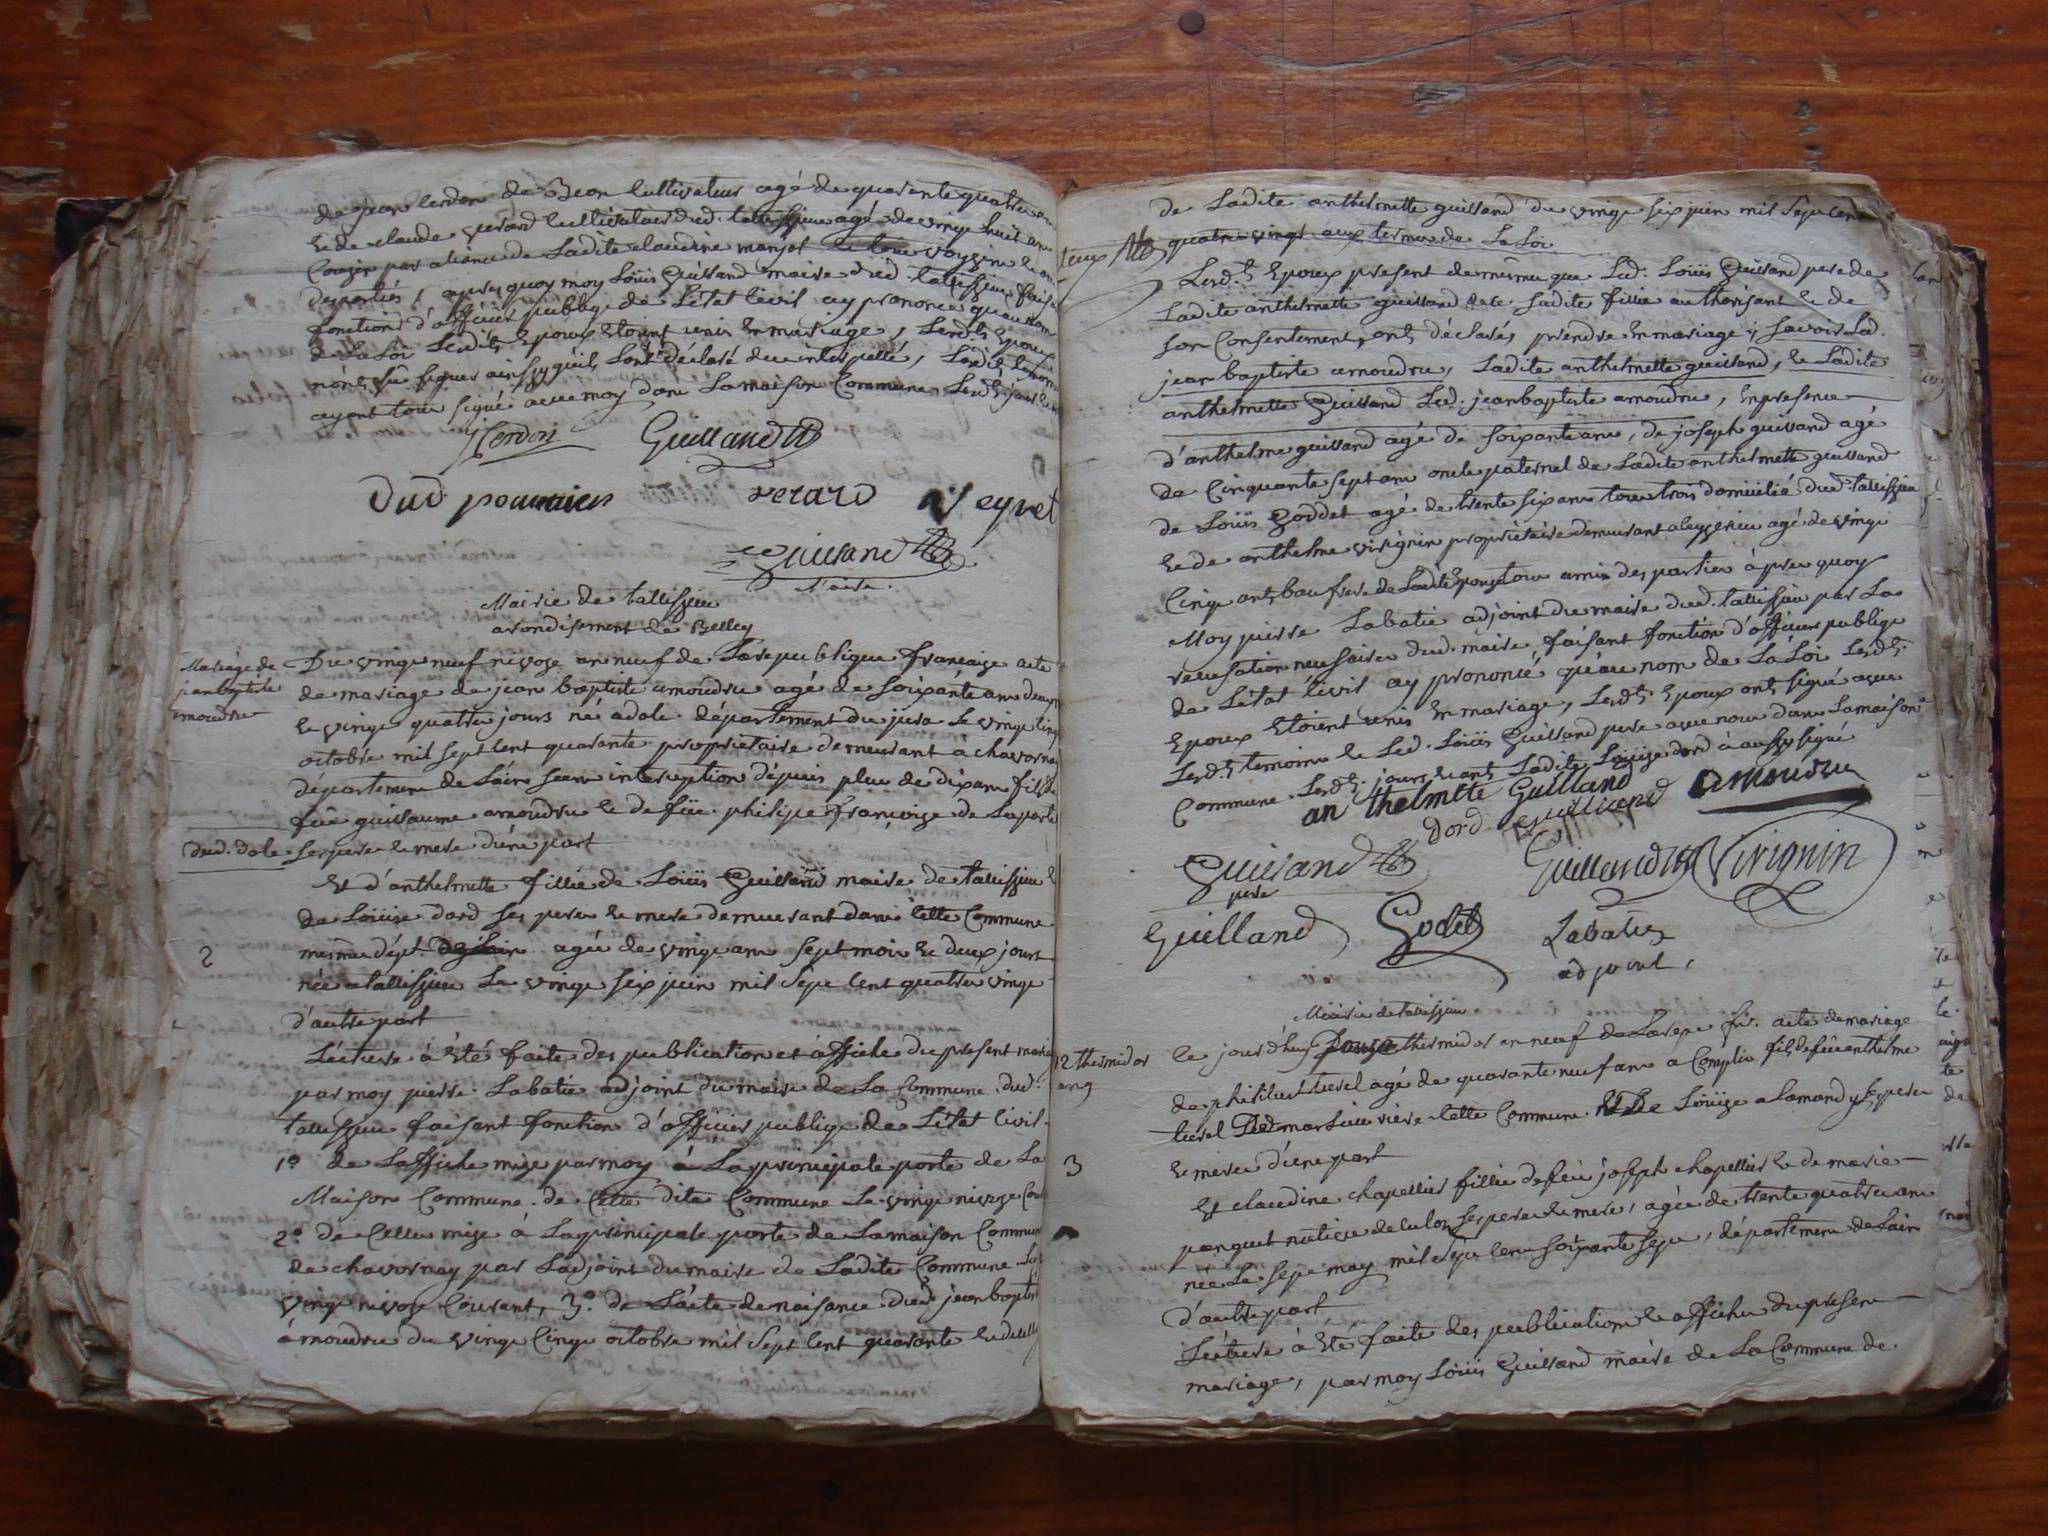 de jean cerdon de Beon cultivateur agé de quarente quatre ans
et de claude verard cultivateur dud. tallissieu agé de vingt huit ans
Couzin par aliance de Ladite claudine manjot
des parties, apres quoy moy Loüis Guilland maire dud tallissieu faisant
fonction d'officier publique de L'état Civil ay prononcé qu'au nom
de La Loi Lesdits Epoux Etoint unis En mariage, Lesdts Epoux
n'ont sû signer ainsy quils L'ont déclaré de ce interpellé, Lesdts temoins
ayant tous signé avec moy dans La maison Commune Lesdts jour et an
Cerdon Guilland
Dud pommier verard Veyret
Guilland
Maire.
Mairie de tallissieu
arondisement de Belley
Mariage de
jean baptiste
amoudru
Du vingt neuf nivoze an neuf de La republique francaize acte
de mariage de jean baptiste amoudru agé de soixante ans deux mois
et vingt quatre jours né a dole département du jura Le vingt cinq
octobre mil sept cent quarante propriétaire demeurant à chavornay
département de Lain sans interuption dépuis plus de dix ans fils de
füe guillaume amoudru et de füe philipe françoize de Laporte
dud. dole ses pere et mere d'une part
Et d'anthelmette fille de Loüis Guilland maire de tallissieu et
de Loüize dord ses pere et mere demeurant dans Cette Commune
2
mesme dépt. de Lain agée de vingt ans sept mois et deux jours
née a tallissieu Le vingt six juin mil sept Cent quatre vingt
d'autre part
Lécture à été faite des publication et affiche du present mariage
par moy pierre Labatie adjoint du maire de La Commune dud.
tallissieu faisant fonction d'officier publique de L'état Civil.
1o de Laffiche mize par moy à La principale porte de La
Maison Commune de Cette dite Commune Le vingt nivoze Cour
2o de Celle mize à La principale porte de La maison Commune
de chavornay par Ladjoint du maire de Ladite Commune Le
vingt nivoze Courant, 3o de L'acte de naisance dud. jean baptiste
àmoudru du vingt Cinq octobre mil sept Cent quarante et de celle
de Ladite anthelmette guilland du vingt six juin mil sept cent
quatre vingt aux termes de La Loi
Lesd.ts Epoux present de mesme que Led. Loüis Guilland pere de
Ladite anthelmette guilland de Ladite fille authorisant et de
son Consentement, ont déclarés prendre En mariage; savoir Led.
jean baptiste amoudru, Ladite anthelmette guilland, et Ladite
anthelmette Guilland Led. jean baptiste amoudru, En presence
d'anthelme guilland agé de soixante ans, de joseph guilland agé
de Cinquante sept ans oncle paternel de Ladite anthelmette guilland
de Loüis Goddet agé de trente six ans tous trois domicilié dud. tallissieu
et de anthelme virignin propriétaire demeurant a leyssieu agé de vingt
Cinq ans beau frere de Ladite Epouze tous amis des parties à pres quoy
Moy pierre Labatie adjoint du maire dud. tallissieu par La
recusation necessaire dud. maire, faisant fonction d'officier publique
de L'état Civil ay prononcé qu'au nom de La Loi Lesdts
Epoux Etoient unis En mariage, Lesdts Epoux ont signé avec
Lesdts temoins et Led. Loüis Guilland pere avec nous dans La maison
Commune Lesdts jour et ant Ladite Loüize dord à aussy signé
anthelmette Guilland amoudru
Dord
Guilland Guilland Virignin
pere
Guilland Godet Labatie
adjoint,
Mairie de tallissieu
12 thermidor
an 9
Le jourd'huy Douze thermidor an neuf de La repe fr. acte de mariage
de philibert turel agé de quarante neuf ans a Complis fils de füe anthelme
turel Cette Commune et de Loüize alamand ses pere
3
et mere d'une part
Et claudine chapellier fille de füe joseph chapellier et de marie
panquet native de culoz ses pere et mere, agée de trente quatre ans
née Le sept may mil sept Cent soixante sept, département de Lain
d'autre part
Lécture à été faite des publication et affiche du present
mariage, par moy Loüis Guilland maire de La Commune de